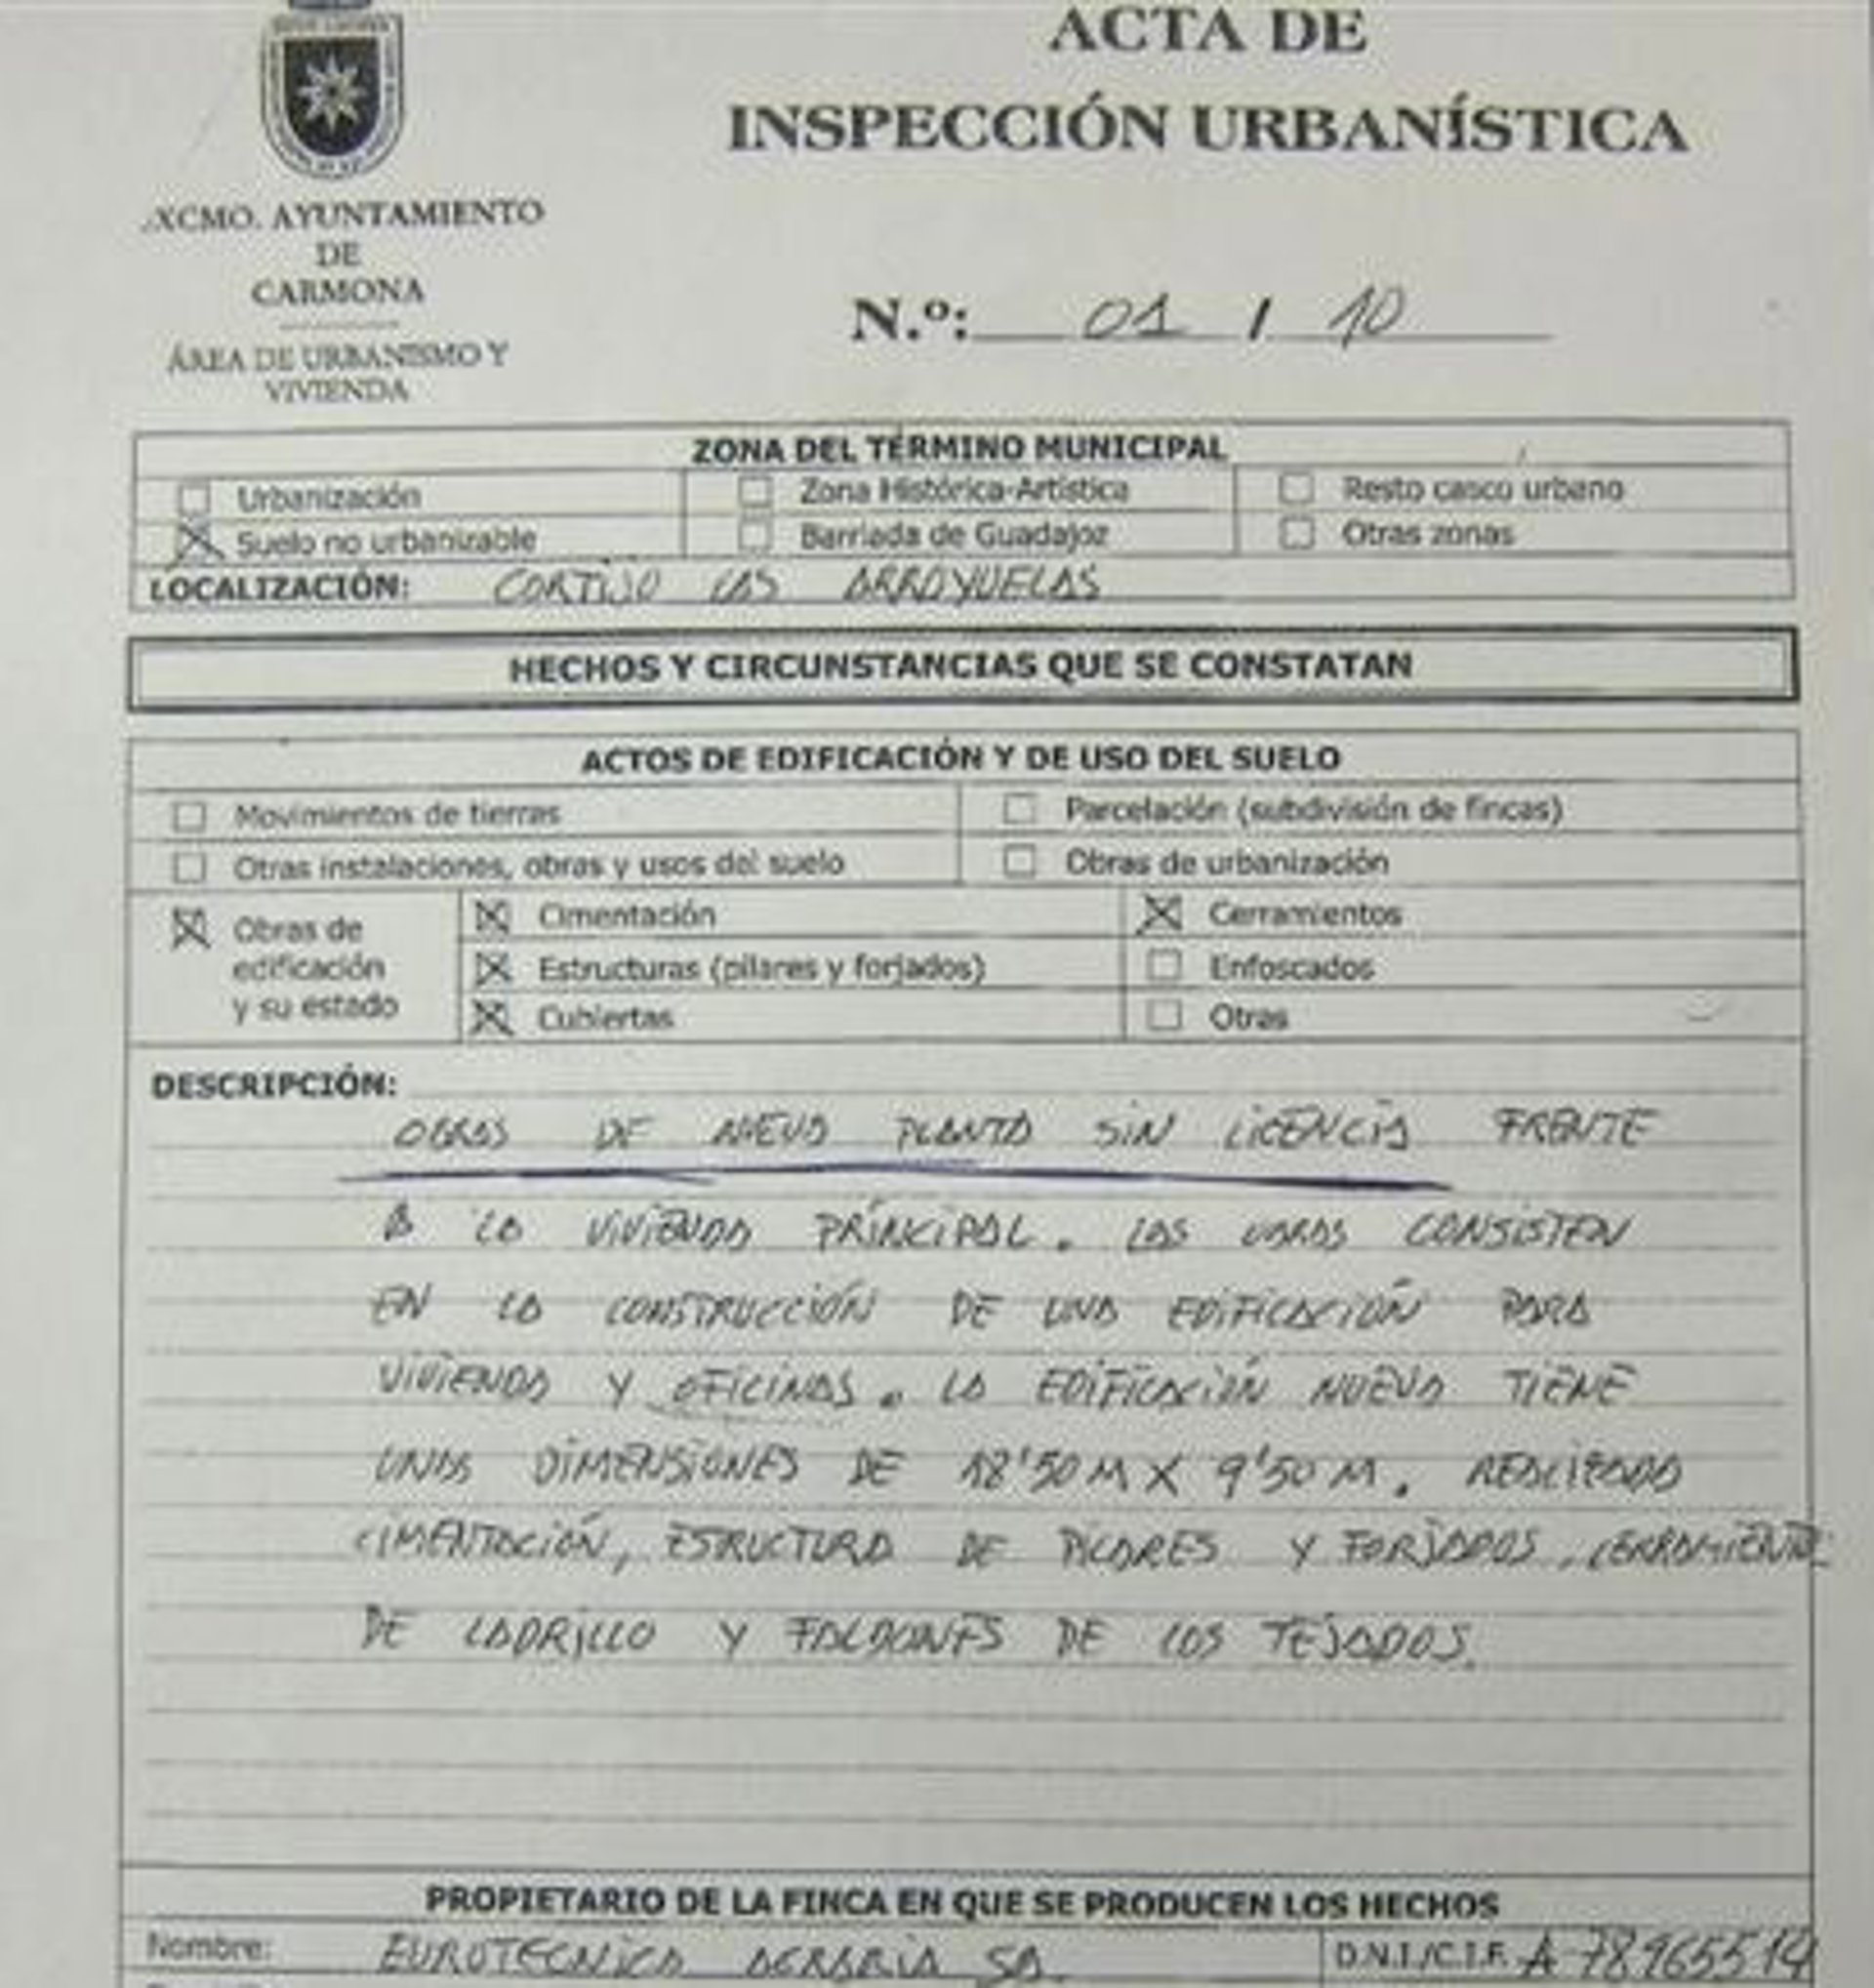 ACTA DE
INSPECCIÓN URBANÍSTICA
XCMO. AYUNTAMIENTO
DE
CARMONA
ÁREA DE URBANISMO Y
VIVIENDA
N.º: 01 / 10
ZONA DEL TÉRMINO MUNICIPAL
Urbanización Zona Histórica-Artística Resto casco urbano
Suelo no urbanizable Barriada de Guadajoz Otras zonas
LOCALIZACIÓN: CORTIJO LAS ARROYUELAS
HECHOS Y CIRCUNSTANCIAS QUE SE CONSTATAN
ACTOS DE EDIFICACIÓN Y DE USO DEL SUELO
Movimientos de tierras Parcelación (subdivisión de fincas)
Otras instalaciones, obras y usos del suelo Obras de urbanización
Obras de edificación y su estado
Cimentación Cerramientos
Estructuras (pilares y forjados) Enfoscados
Cubiertas Otras
DESCRIPCIÓN:
OBRAS DE NUEVA PLANTA SIN LICENCIA FRENTE
A LA VIVIENDA PRINCIPAL. LAS OBRAS CONSISTEN
EN LA CONSTRUCCIÓN DE UNA EDIFICACIÓN PARA
VIVIENDA Y OFICINAS. LA EDIFICACIÓN NUEVA TIENE
UNAS DIMENSIONES DE 18'50 M X 9'50 M. REALIZADA
CIMENTACIÓN, ESTRUCTURA DE PILARES Y FORJADOS, CERRAMIENTO
DE LADRILLO Y FALDONES DE LOS TEJADOS.
PROPIETARIO DE LA FINCA EN QUE SE PRODUCEN LOS HECHOS
Nombre: EUROTECNICA AGRARIA SA. D.N.I./C.I.F. A